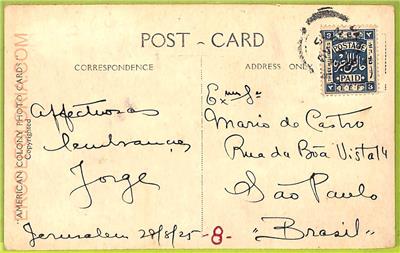 POST - CARD
CORRESPONDENCE
ADDRESS ONLY
Affectuosas
lembranças
Jorge
Jerusalem 28/8/25
-8-
Exmo Sr
Mario de Castro
Rua da Bôa Vista 14
São Paulo
"Brasil"
POSTAGE
PAID
E.E.F.
"AMERICAN COLONY PHOTO CARD"
Copyrighted